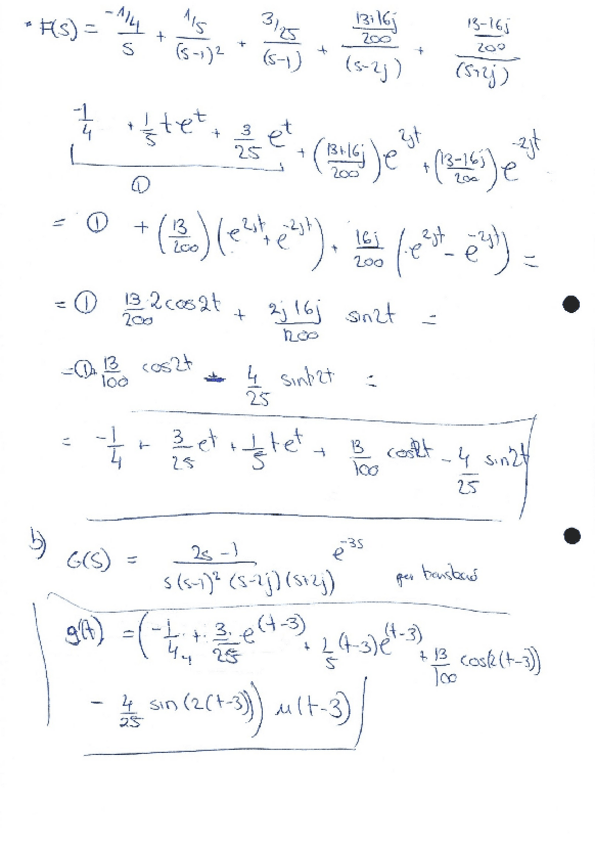 * F(s) = \frac{-1/4}{s} + \frac{1/5}{(s-1)^2} + \frac{3/25}{(s-1)} + \frac{\frac{13+16j}{200}}{(s-2j)} + \frac{\frac{13-16j}{200}}{(s+2j)}
\frac{-1}{4} + \frac{1}{5} t e^t + \frac{3}{25} e^t + (\frac{13+16j}{200}) e^{2jt} + (\frac{13-16j}{200}) e^{-2jt}
①
= ① + (\frac{13}{200}) (e^{2jt} + e^{-2jt}) + \frac{16j}{200} (e^{2jt} - e^{-2jt}) =
= ① \frac{13}{200} \cdot 2 cos 2t + \frac{2j 16j}{200} sin 2t =
= ① \frac{13}{100} cos 2t - \frac{4}{25} sin 2t =
= \frac{-1}{4} + \frac{3}{25} e^t + \frac{1}{5} t e^t + \frac{13}{100} cos 2t - \frac{4}{25} sin 2t
b) G(s) = \frac{2s-1}{s(s-1)^2 (s-2j)(s+2j)} e^{-3s} per translació
g(t) = (\frac{-1}{4} + \frac{3}{25} e^{(t-3)} + \frac{1}{5} (t-3) e^{(t-3)} + \frac{13}{100} cos(2(t-3))
- \frac{4}{25} sin(2(t-3))) u(t-3)